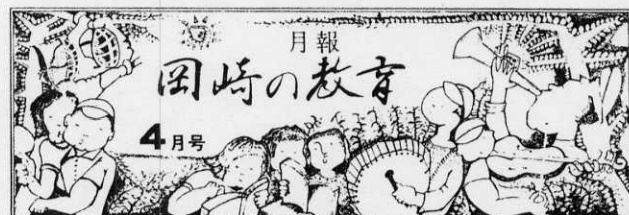 月報
岡崎の教育
4月号